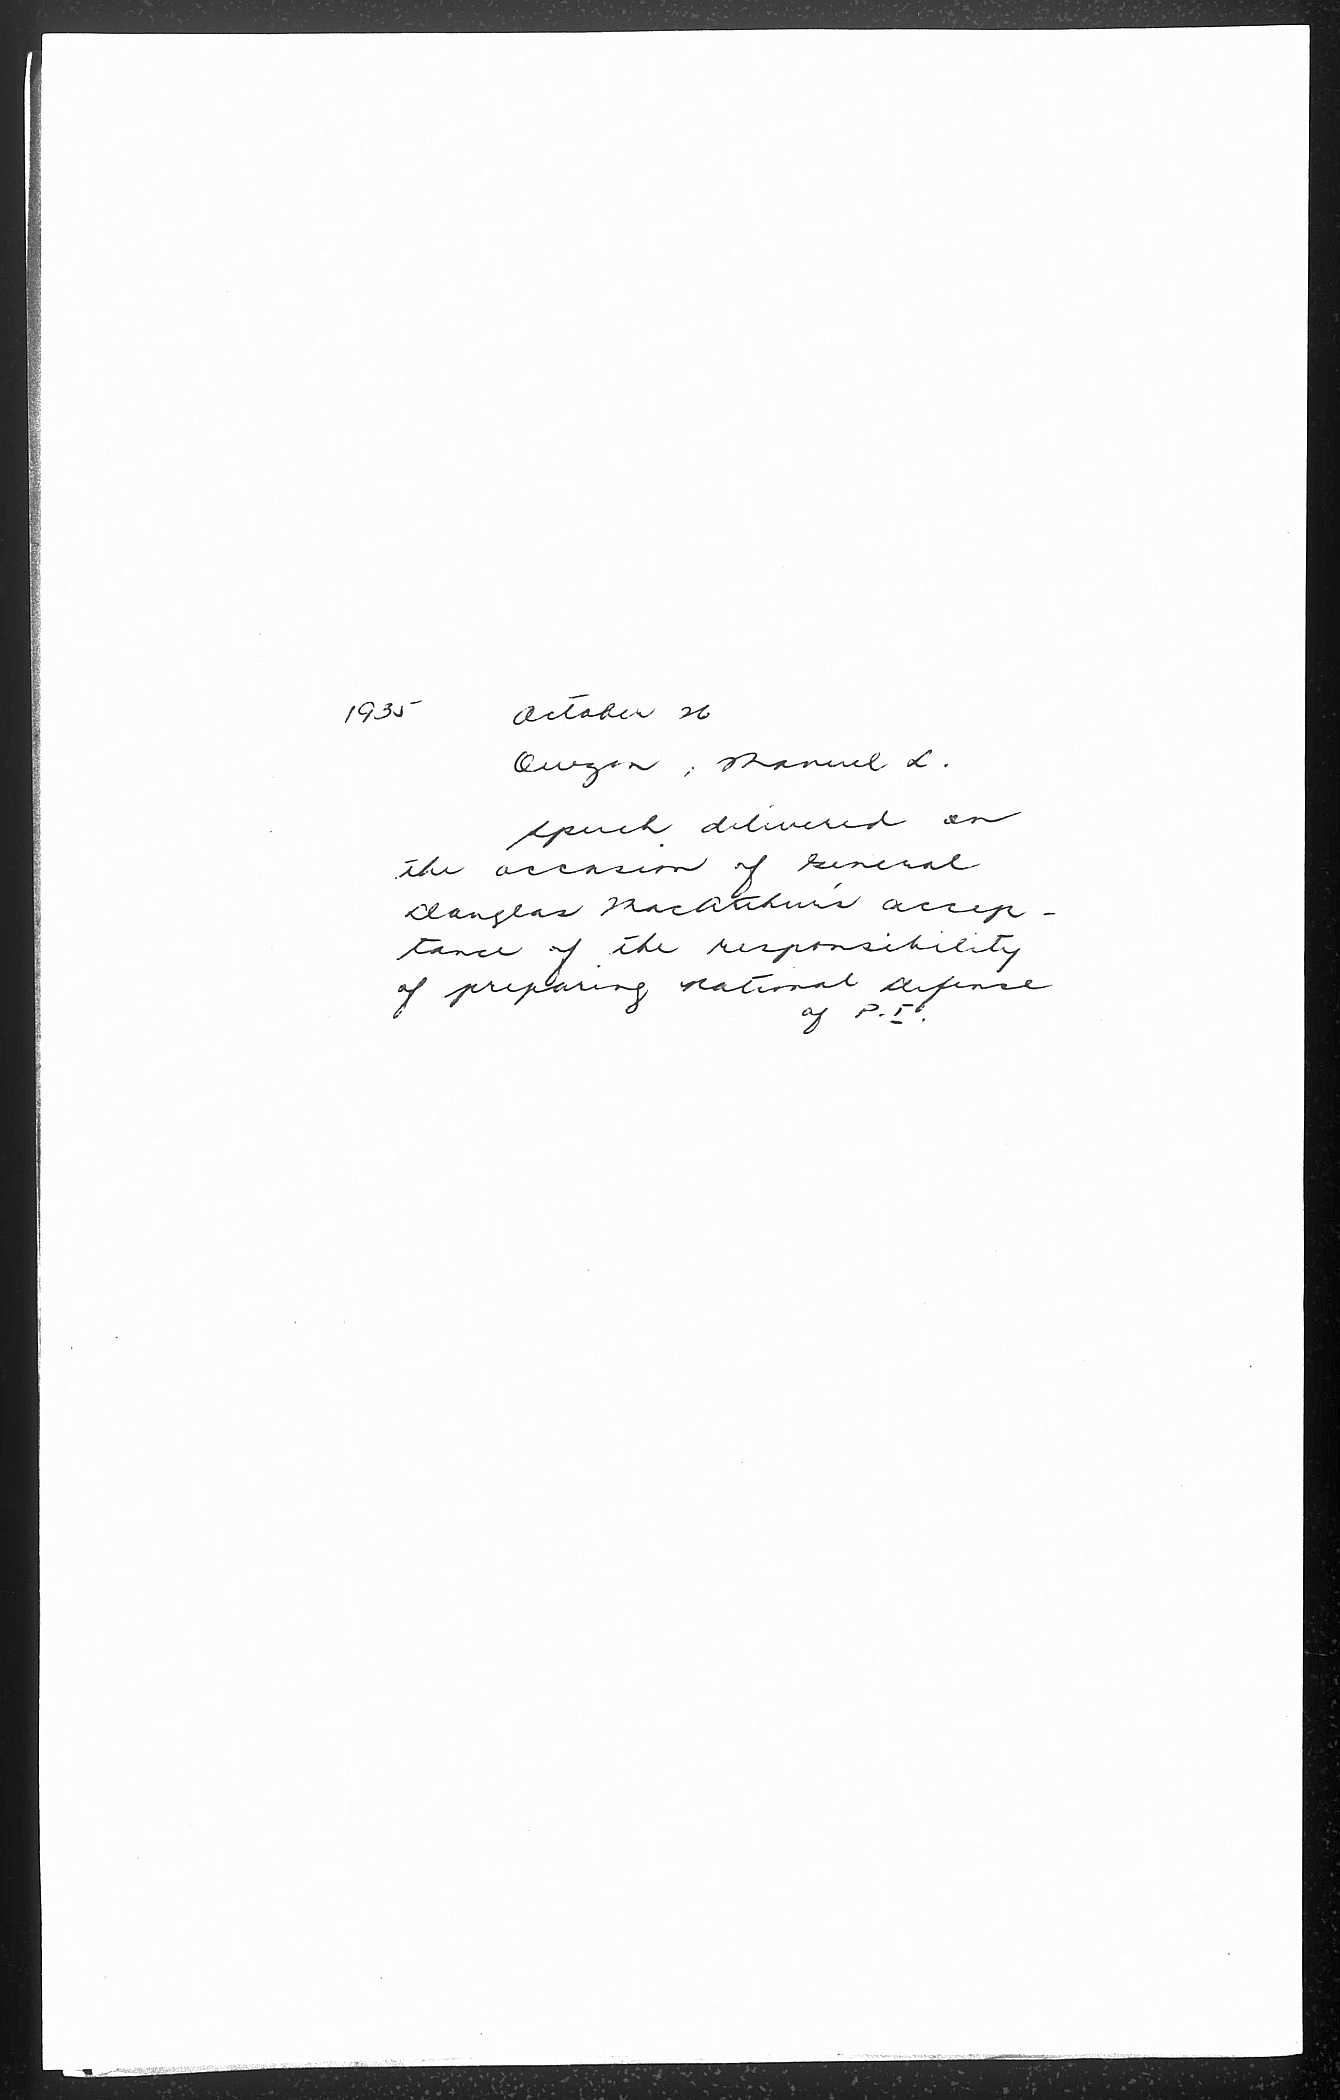 1935 October 26
Quezon, Manuel L.
Speech delivered on
the occasion of General
Douglas MacArthur's accep-
tance of the responsibility
of preparing national defense
of P.I.